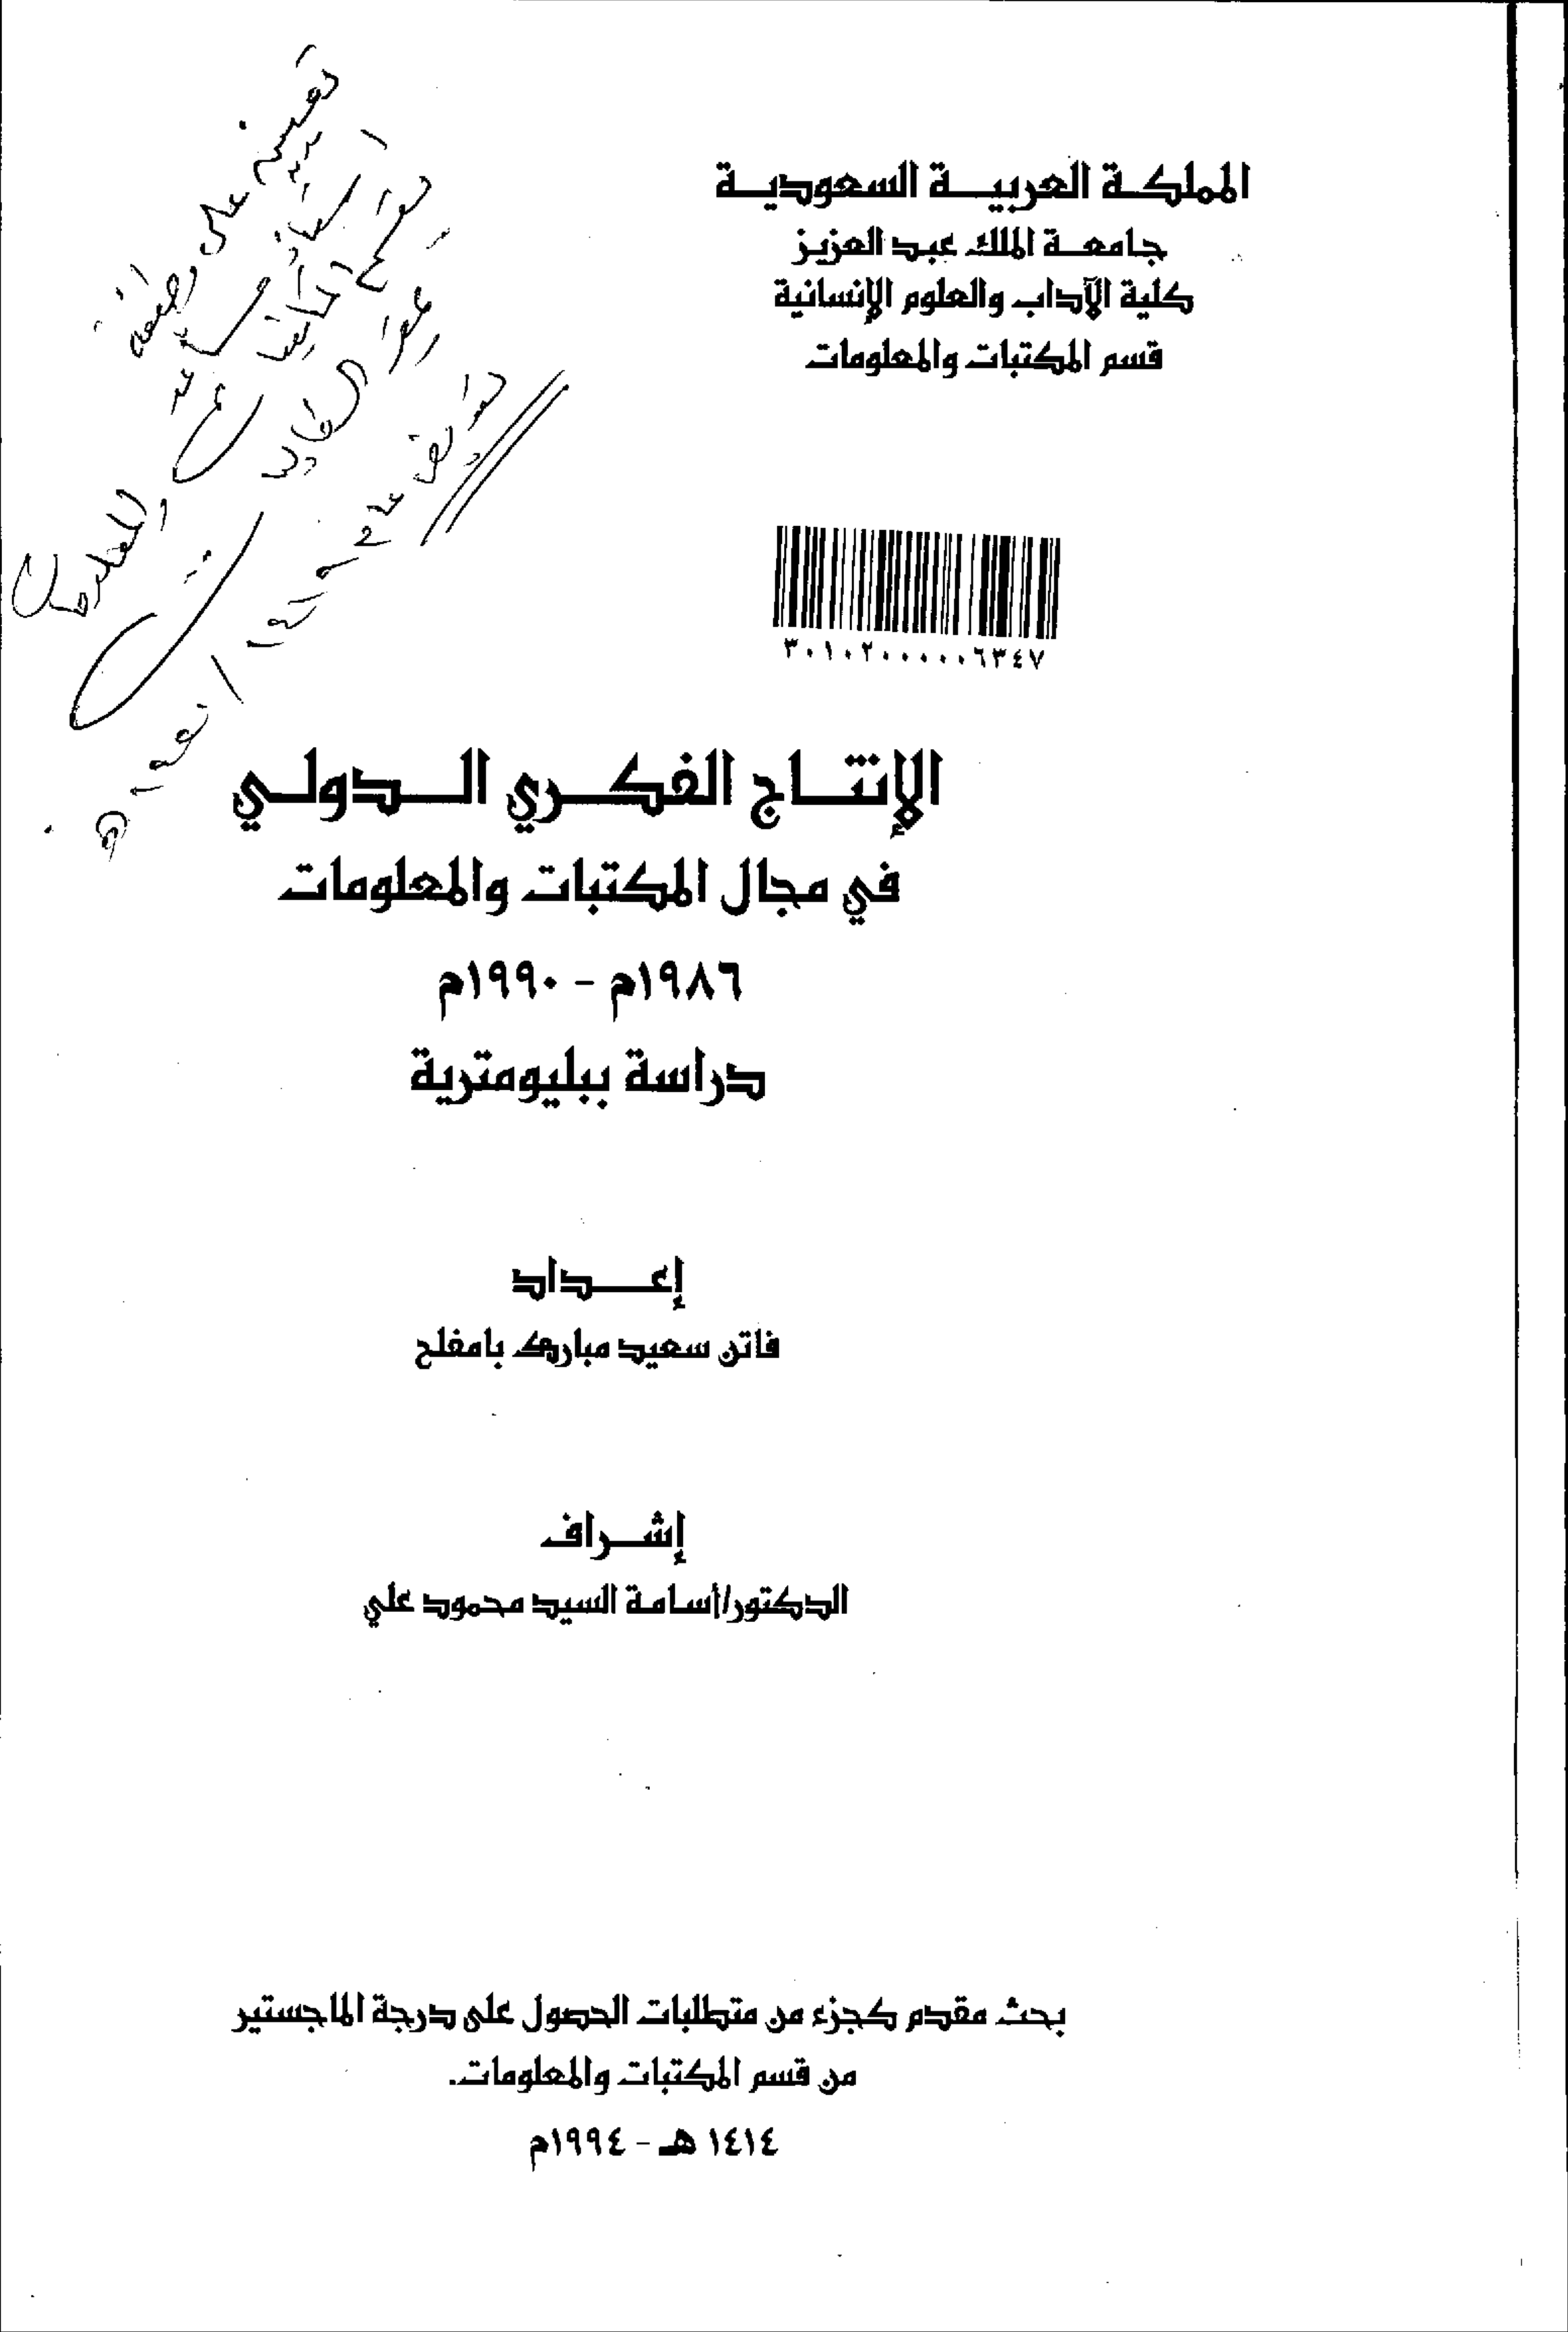 المملكة العربية السعودية
جامعة الملك عبد العزيز
كلية الآداب والعلوم الإنسانية
قسم المكتبات والمعلومات
٣٠١٠٢٠٠٠٠٠٦٣٤٧
الإنتاج الفكري الدولي
في مجال المكتبات والمعلومات
١٩٨٦م - ١٩٩٠م
دراسة ببليومترية
إعداد
فاتن سعيد مبارك بامفلح
إشراف
الدكتور/أسامة السيد محمود علي
بحث مقدم كجزء من متطلبات الحصول على درجة الماجستير
من قسم المكتبات والمعلومات.
١٤١٤ هـ - ١٩٩٤م